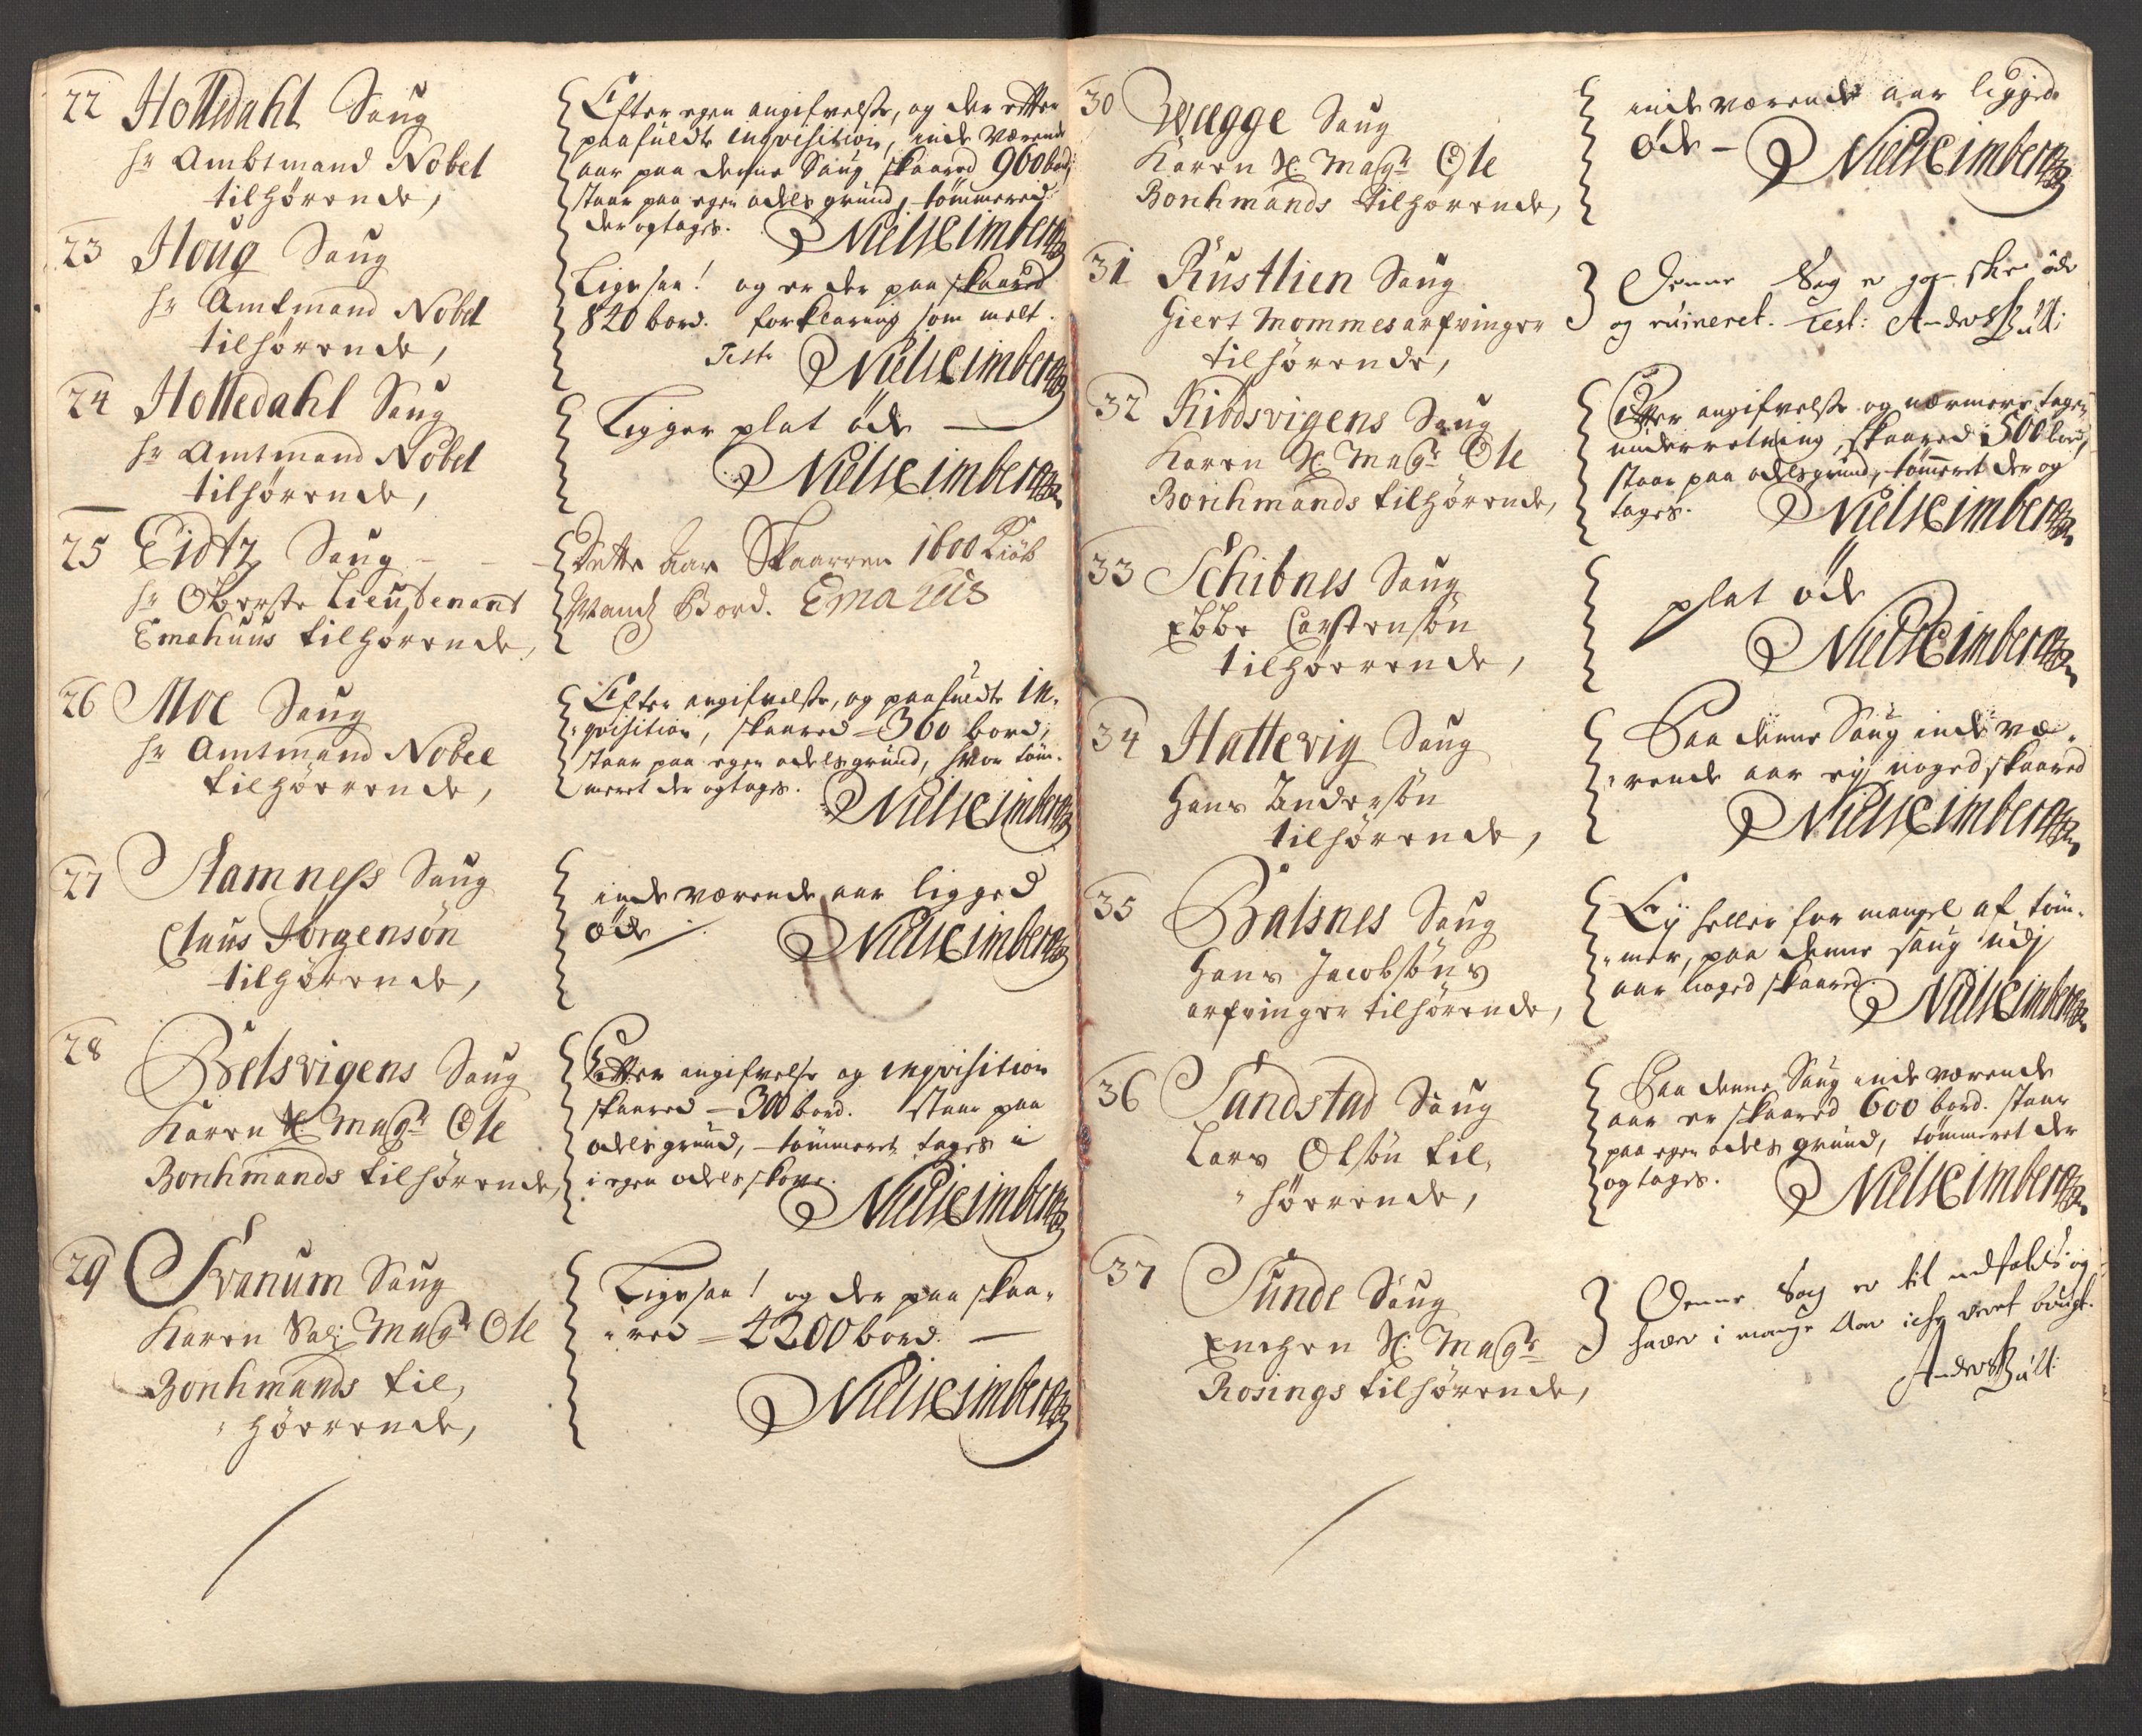 22 Holledahl Saug
hr Ambtmand Nobel
tilhørende,
Efter egen angifvelse, og der efter
paafuldte inqvisition, inde værende
aar paa denne Saug skaared 960 bord;
staar paa egen odels grund, tømmered
der og tages. Niels Eimberg
23 Houg Saug
hr Amtmand Nobel
tilhørende,
Ligesaa! og er der paa skaared
840 bord. forklaring som melt.
Teste Niels Eimberg
24 Holledahl Saug
hr Amtmand Nobel
tilhørende,
Ligger plat øde
Niels Eimberg
25 Eidtz Saug
hr Oberste Lieutenant
Emahuus tilhørende,
Dette Aar Skaarren 1600 Kiøb
Mands Bord. Emahus
26 Moe Saug
hr Amtmand Nobel
tilhørrende,
Efter angifvelse, og paafuldte in-
qvisition, skaared 360 bord;
staar paa egen odels grund, hvor tøm-
meret der og tages. Niels Eimberg
27 Stamness Saug
Claus Jørgensøn
tilhørende,
inde værende aar ligged
øde Niels Eimberg
28 Belsvigens Saug
Karen Magr Ole
Bonhmands tilhørende,
Efter angifvelse og inqvisition
skaared 300 bord. staar paa
odels grund, tømmeret tages i
i egen odels skove.
Niels Eimberg
29 Svanum Saug
Karen Sal: Magr Ole
Bonhmands til,
hørrende,
Ligesaa! og der paa skaa-
red 4200 bord.
Niels Eimberg
30 Wægge Saug
Karen Magr Ole
Bonhmands tilhørende,
inde værende aar ligged
øde Niels Eimberg
31 Rustlien Saug
Giert Mommes arfvinger
tilhørende,
Denne Sag er øde
og ruineret. Test: Anders Bult:
32 Kibdsvigens Saug
Karen Magr Ole
Bonhmands tilhørende,
Efter angifvelse og nærmere tagen
underretning, skaared 500 bord,
staar paa odels grund, tømmeret der og
tages. Niels Eimberg
33 Schibnes Saug
Ebbe Carstensøn
tilhørrende,
plat øde
Niels Eimberg
34 Hattevig Saug
Hans Andersøn
tilhørende,
Paa denne Saug inde væ-
rende aar eij noged skaared
Niels Eimberg
35 Balsnes Saug
Hans Jacobsøns
arfvinger tilhørende,
Eij heller for mangel af tøm-
mer, paa denne saug udj
aar noged skaared Niels Eimberg
36 Sandstad Saug
Lars Olsøn til,
hørrende,
Paa denne Saug inde værende
aar er skaared 600 bord. staar
paa egen odels grund, tømmeret der
og tages. Niels Eimberg
37 Sunde Saug
Enchen Magr
Rosings tilhørende,
Denne Sag er til nedfalds og
haver i mange Aar icke veret brugt.
Anders Bult: